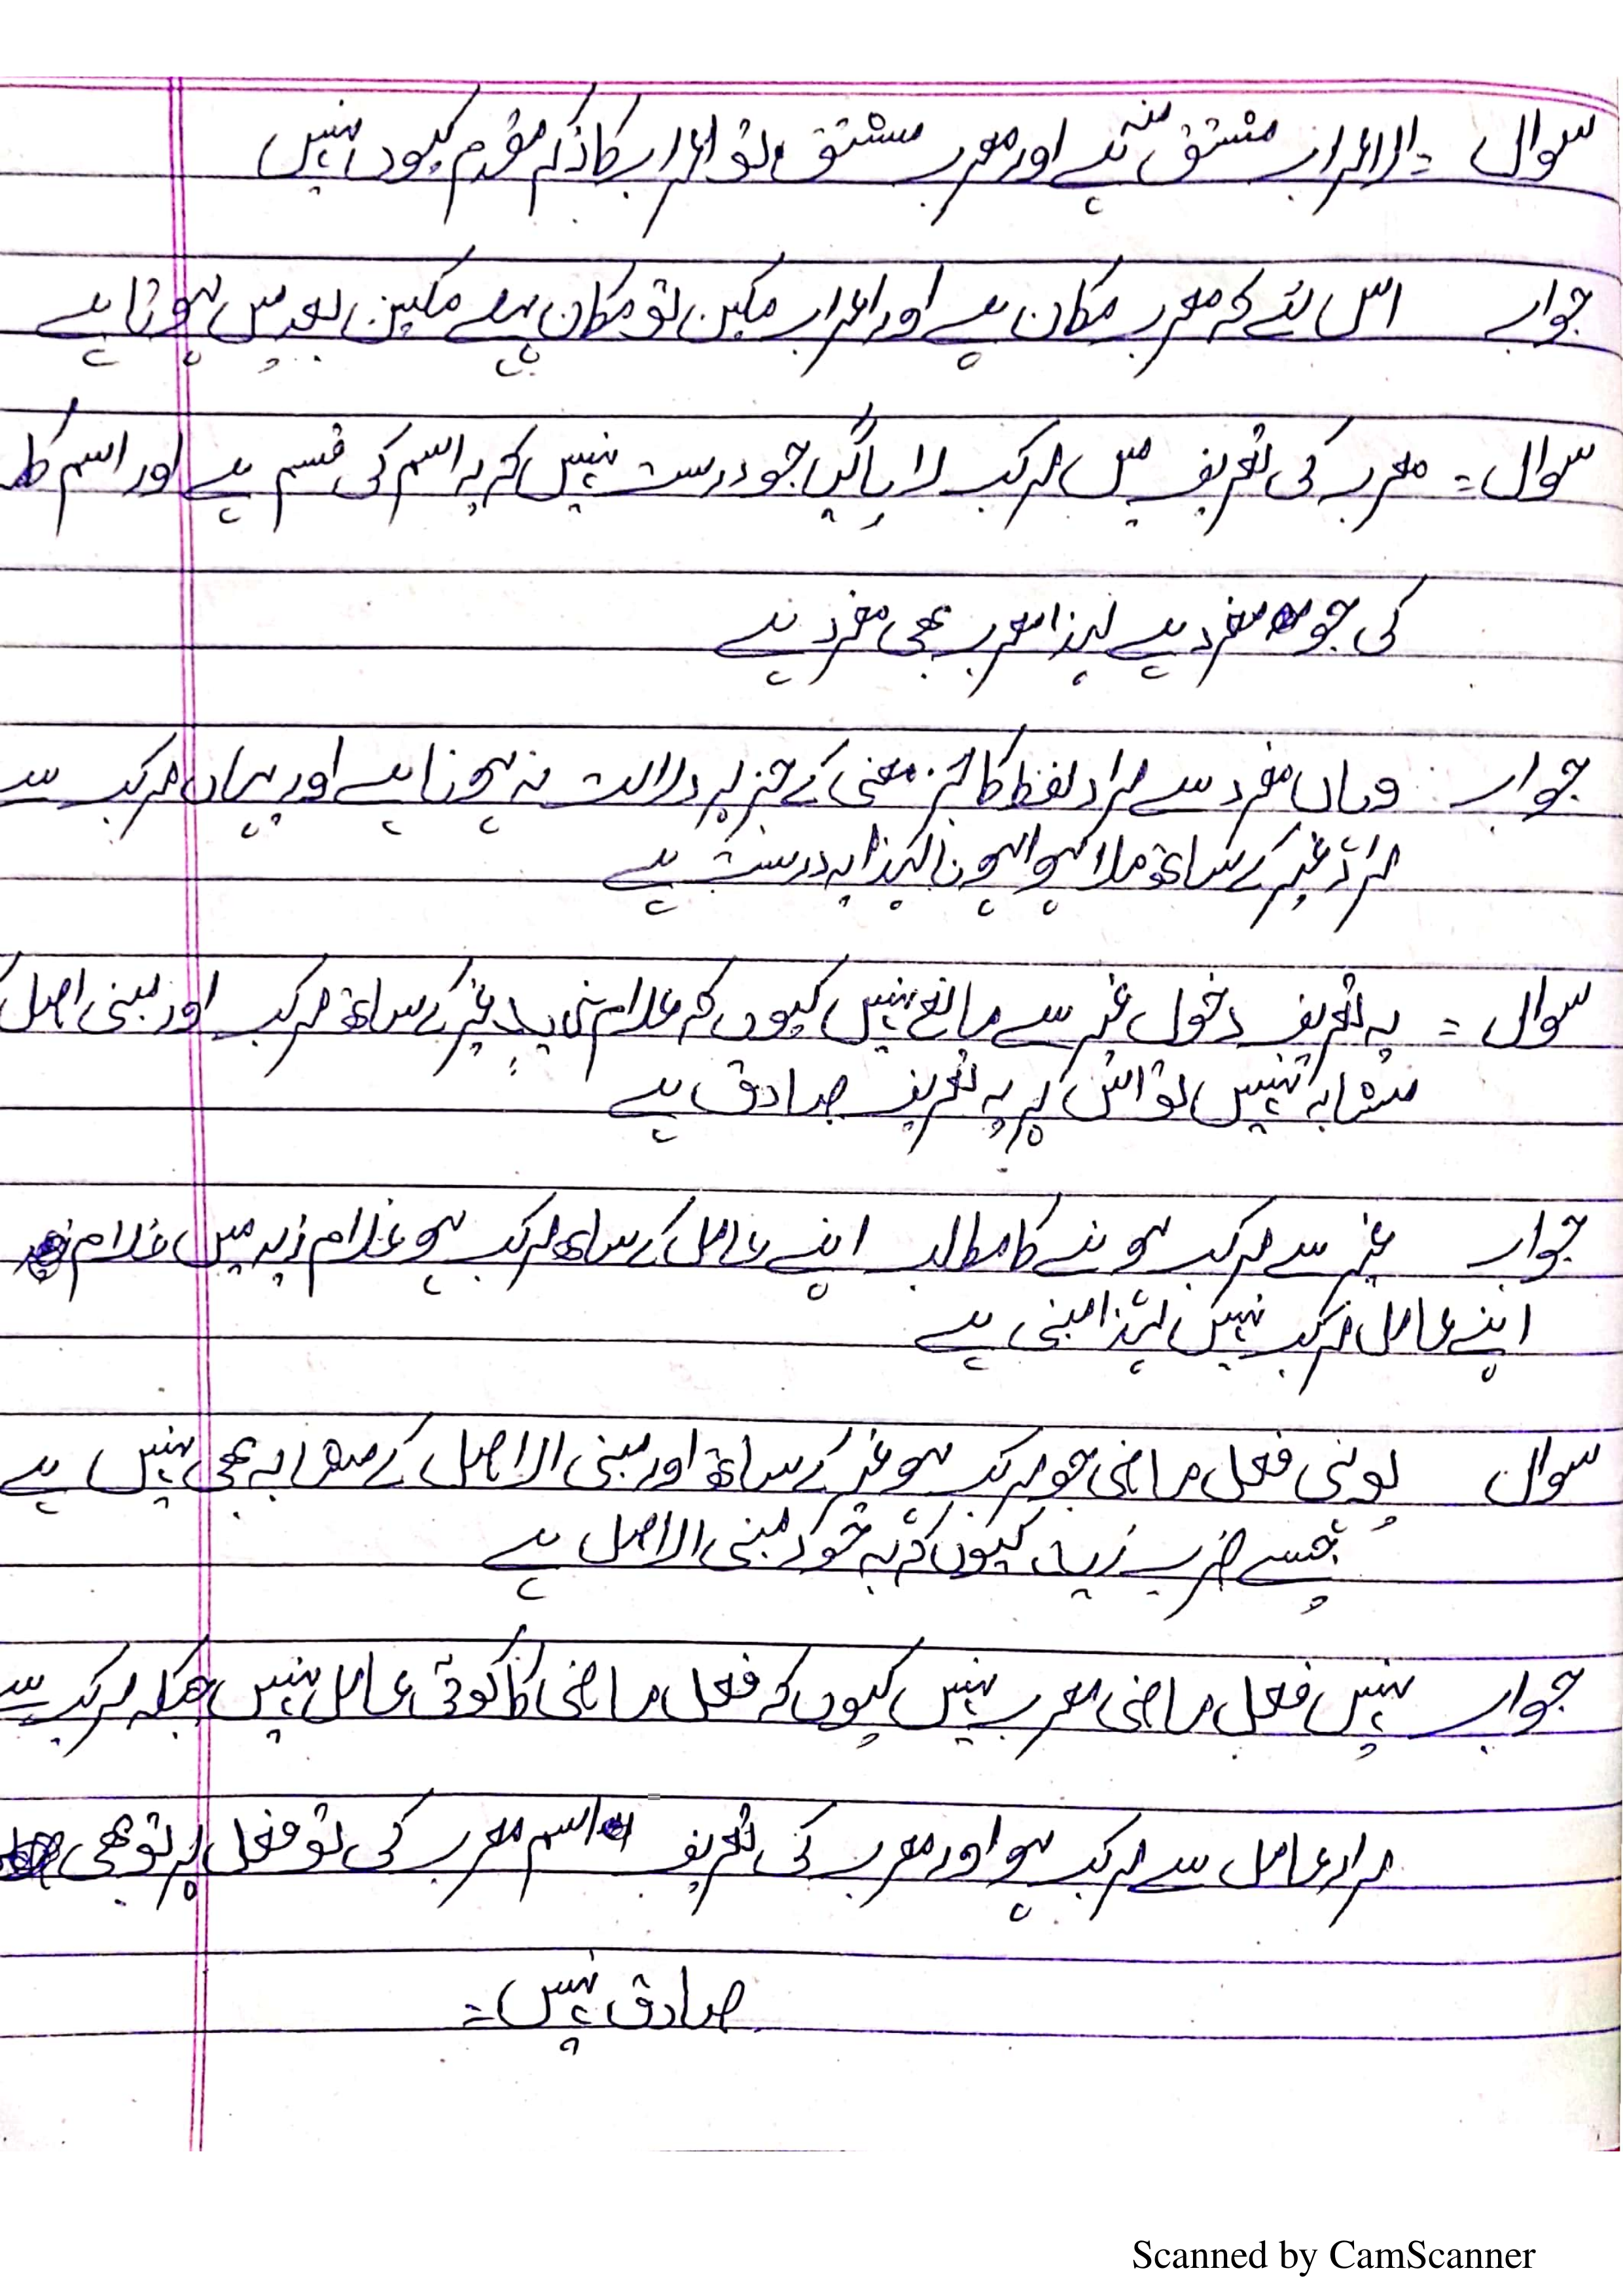 سوال = الاعراب مشتق منہ ہے اور معرب مشتق تو اعراب کا ذکر مقدم کیوں نہیں
جواب اس لئے کہ معرب مکان ہے اور اعراب مکین تو مکان پہلے مکین بعد میں ہوتا ہے
سوال = معرب کی تعریف میں مرکب لایا گیا جو درست نہیں کہ یہ اسم کی قسم ہے اور اسم کلمہ
کی جو مفرد ہے لہذا معرب بھی مفرد ہے
جواب : وہاں مفرد سے مراد لفظ کا جز معنی کے جز پر دلالت نہ ہونا ہے اور یہاں مرکب سے
مراد غیر کے ساتھ ملا ہوا ہونا لہذا یہ درست ہے
سوال = یہ تعریف دخول غیر سے مانع نہیں کیوں کہ غلام زید غیر کے ساتھ مرکب اور مبنی اصل کے
مشابہ نہیں تو اس پر یہ تعریف صادق ہے
جواب غیر سے مرکب ہونے کا مطلب اپنے عامل کے ساتھ مرکب ہو غلام زید میں غلام
اپنے عامل مرکب نہیں لہذا مبنی ہے
سوال یونہی فعل ماضی جو مرکب ہو غیر کے ساتھ اور مبنی الاصل کے مشابہ بھی نہیں ہے
جیسے ضرب زید کیوں کہ یہ خود مبنی الاصل ہے
جواب نہیں فعل ماضی معرب نہیں کیوں کہ فعل ماضی کا کوئی عامل نہیں جبکہ مرکب سے
مراد عامل سے مرکب ہو اور معرب کی تعریف اسم معرب کی تو فعل پر تو بھی
صادق نہیں =
Scanned by CamScanner